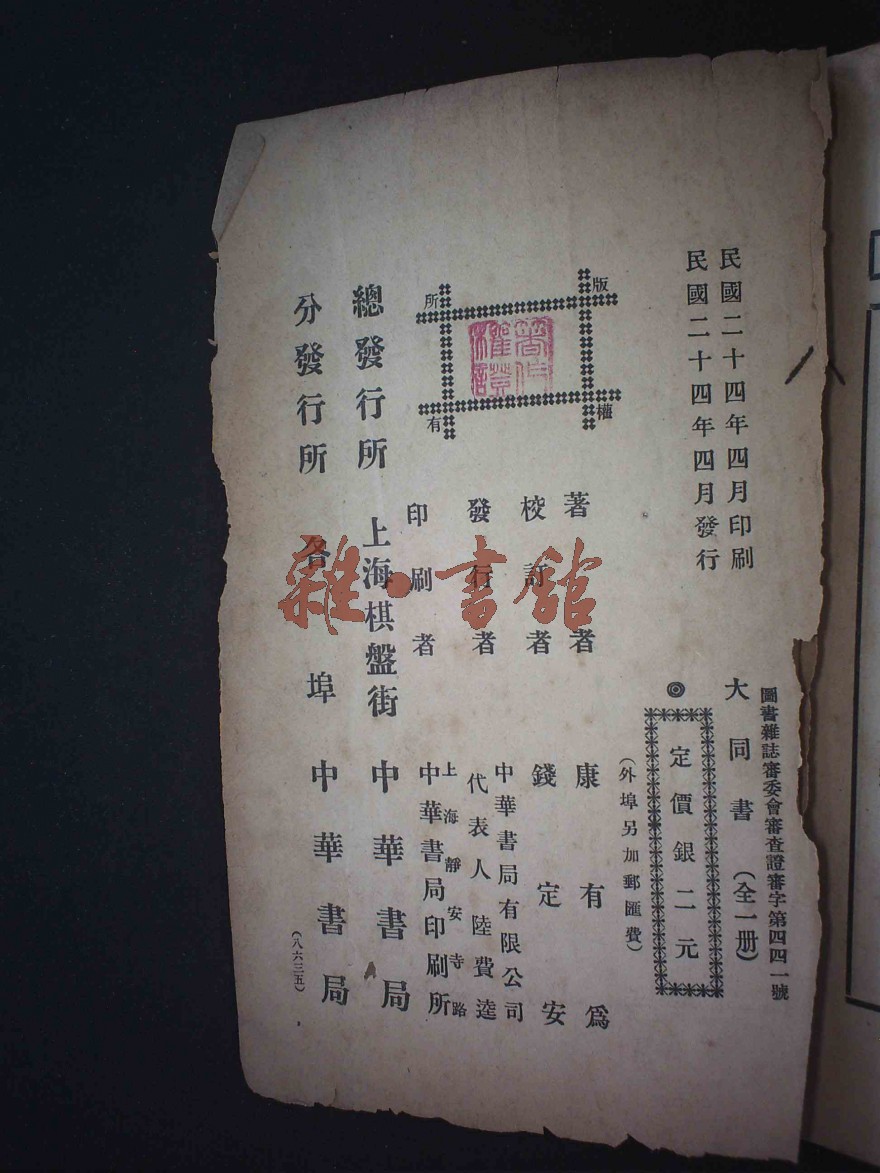 民國二十四年四月印刷
民國二十四年四月發行
圖書雜誌審委會審查證審字第四四一號
大同書（全一册）
◎定價銀二元
（外埠另加郵匯費）
版權所有
著者 康有爲
校訂者 錢定安
發行者 中華書局有限公司
代表人陸費逵
印刷者 上海靜安寺路
中華書局印刷所
總發行所 上海棋盤街 中華書局
分發行所 各埠 中華書局
（八六三五）
雜·書舘